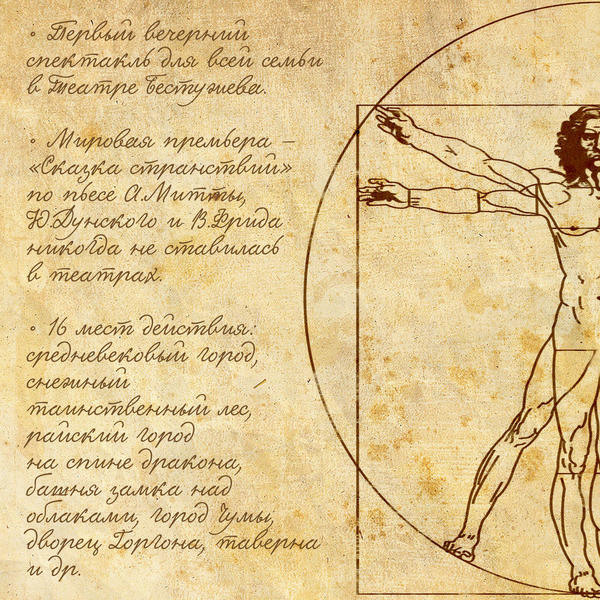 • Первый вечерний
спектакль для всей семьи
в Театре Бестужева.
• Мировая премьера –
«Сказка странствий»
по пьесе А.Митты,
Ю.Дунского и В.Фрида
никогда не ставилась
в театрах.
• 16 мест действия:
средневековый город,
снежный
таинственный лес,
райский город
на спине дракона,
башня замка над
облаками, город Чумы,
дворец Горгона, таверна
и др.